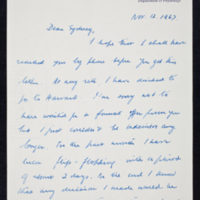 Department of Physiology
Nov. 12. 1967.
Dear Sydney,
I hope that I shall have
reached you by phone before you get this
letter. At any rate I have decided to
go to Harvard. I'm sorry not to
have waited for a formal offer from you
but I just couldn't be indecisive any
longer. For the past month I have
been flip-flopping with a period
of about 2 days. In the end I knew
that any decision I made would be